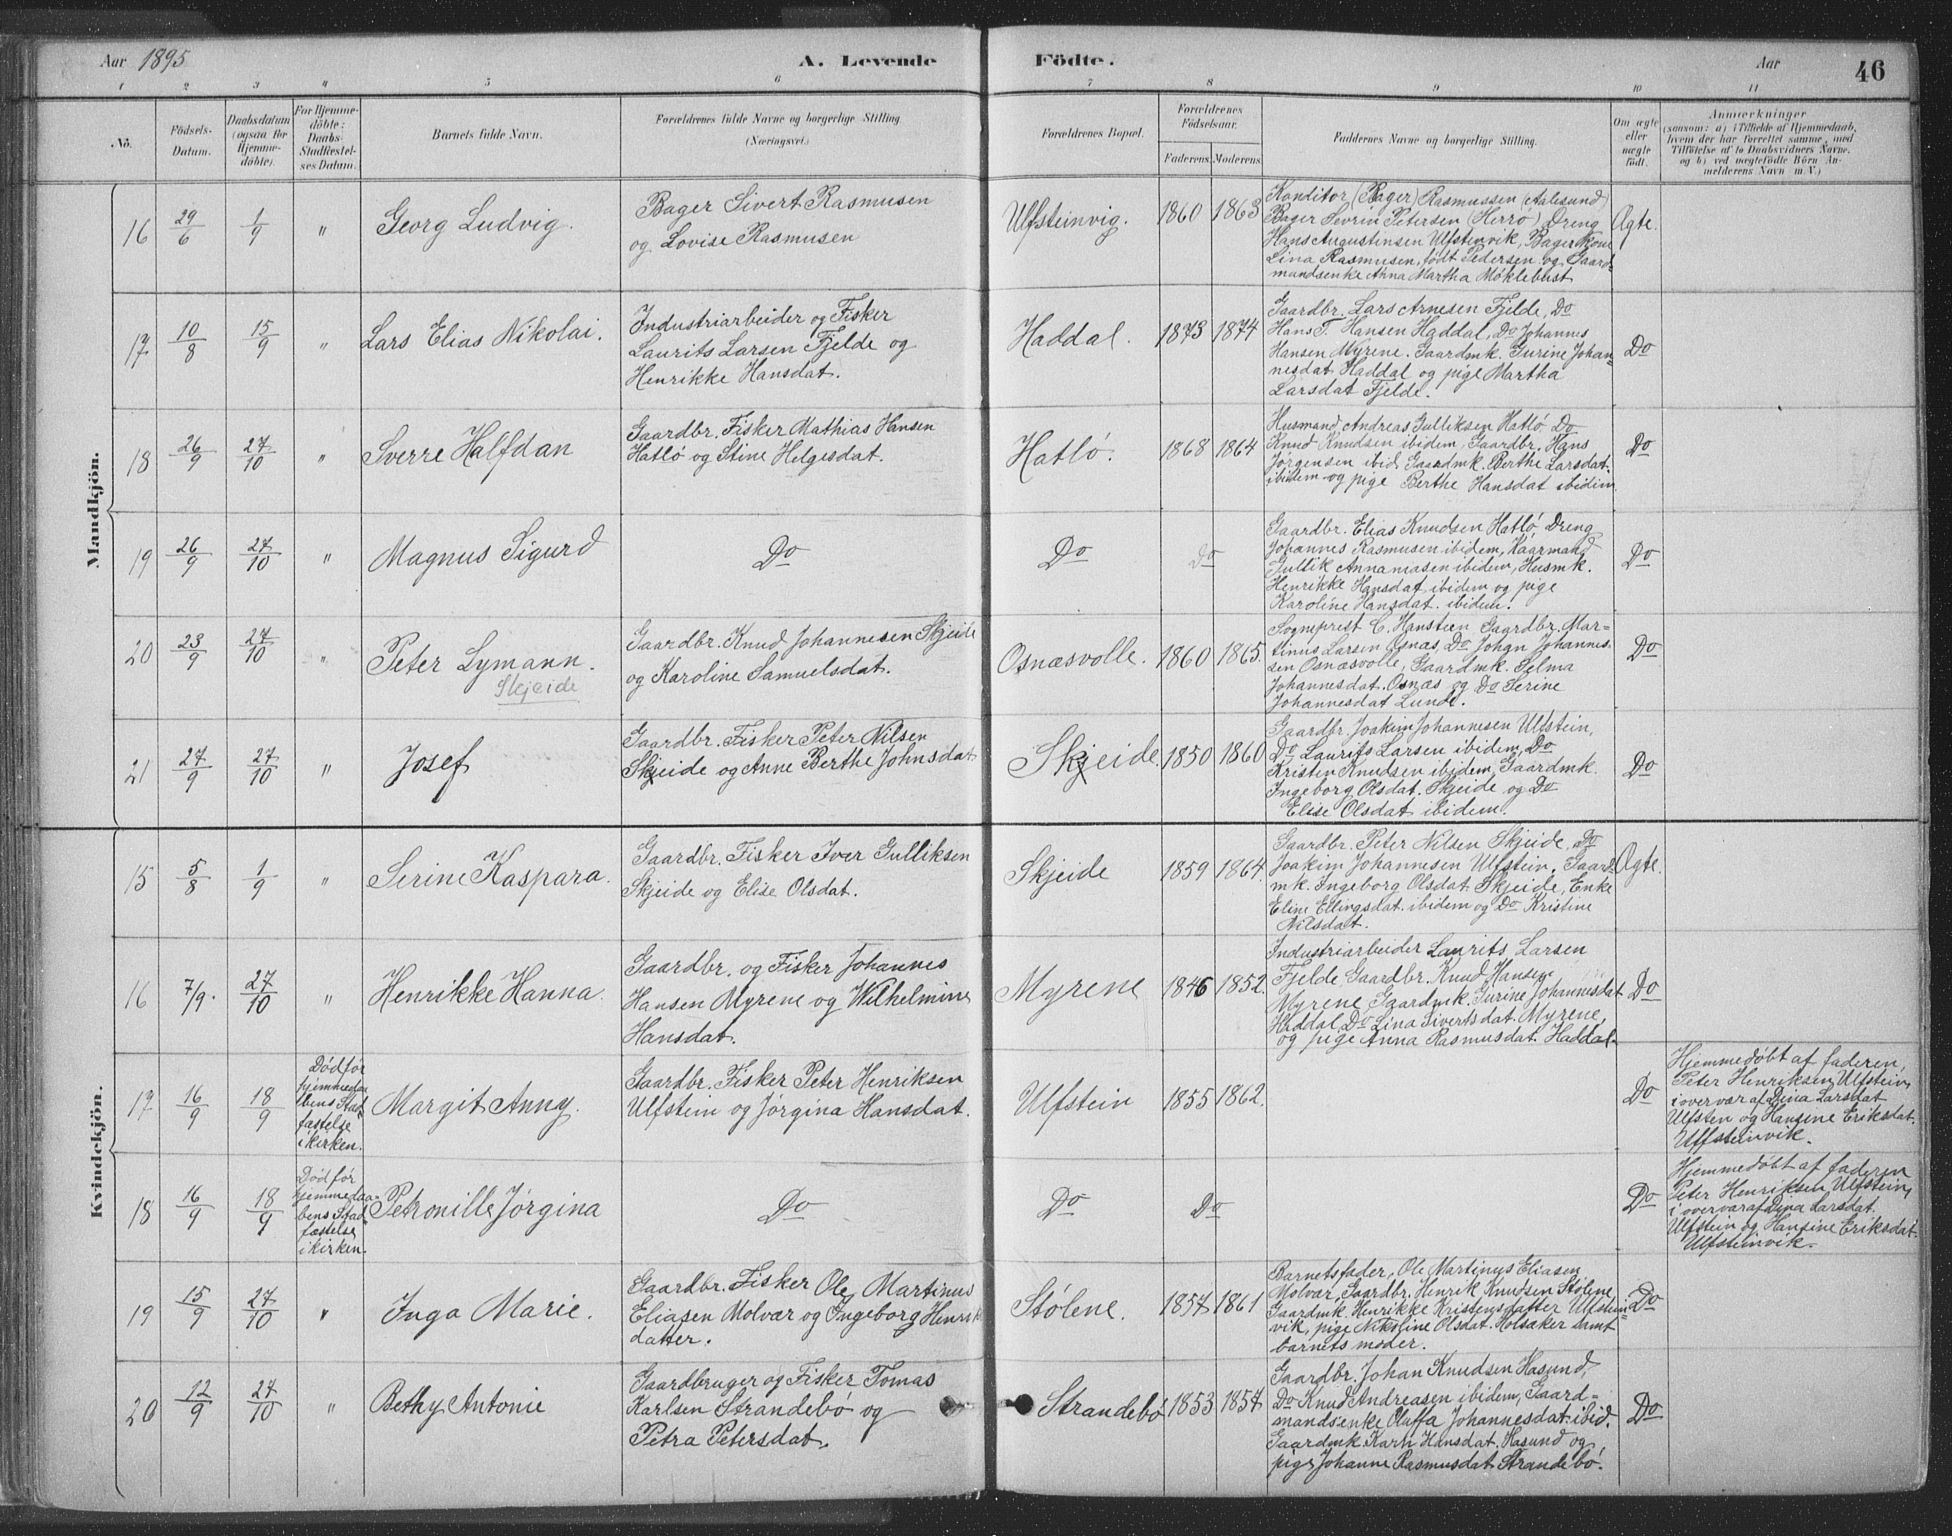 Aar 1895
A. Levende Födte.
Aar
46
1 2 3 4 5 6 7 8 9 10 11
No.
Födsels-
Datum.
Daabsdatum
(ogsaa for
Hjemme-
döbte).
For Hjemme-
döbte:
Daabs-
Stadfæstel-
ses Datum.
Barnets fulde Navn.
Forældrenes fulde Navne og borgerlige Stilling
(Næringsvei.)
Forældrenes Bopæl.
Forældrenes
Födselsaar.
Faderens. Moderens.
Faddernes Navne og borgerlige Stilling.
Om ægte
eller
uægte
födt.
Anmærkninger
(saasom: a) i Tilfælde af Hjemmedaab,
hvem der har forrettet samme, med
Tilföielse af to Daabsvidners Navne,
og b) ved uægtefödte Börn An-
melderens Navn m. V.)
Mandkjön.
16 29/6 1/9 " Georg Ludvig.
Bager Sivert Rasmusen
og Lovise Rasmusen
Ulfsteinvig. 1860 1863
Konditor (Bager) Rasmussen (Aalesund)
Bager Sevrin Petersen (Herrø) Dreng
Hans Augustinsen Ulfstenvik, Bagerkone
Lina Rasmusen, født Pedersen og Gaard=
mandsenke Anna Martha Møklebust
Ægte.
17 10/8 15/9 " Lars Elias Nikolai.
Industriarbeider og Fisker
Laurits Larsen Fjelde og
Henrikke Hansdat.
Haddal. 1873 1874
Gaardbr. Lars Arnesen Fjelde, Do
Hans T. Hansen Haddal, Do Johannes
Hansen Myrene. Gaardmk. Gurine Johan=
nesdat Haddal og pige Martha
Larsdat Fjelde.
Do
18 26/9 27/10 " Sverre Halfdan
Gaardbr. Fisker Mathias Hansen
Hatlø og Stine Helgesdat.
Hatlø. 1868 1864
Husmand, Andreas Gulliksen Hatlø Do
Knud Knudsen ibidem, Gaardbr. Hans
Jørgensen ibid, Gaardmk. Berthe Larsdat.
ibidem og pige Berthe Hansdat ibidim.
Do
19 26/9 27/10 " Magnus Sigurd
Do
Do Do
Gaardbr. Elias Knudsen Hatlø, Dreng
Johannes Rasmusen ibidem, Kaarmand
Gullik Annaniasen ibidem, Husmk.
Henrikke Hansdat ibidem og pige
Karoline Hansdat. ibidem.
Do
20 23/9 27/10 " Peter Lymann.
Skjeide
Gaardbr. Knud Johannesen Skjeide
og Karoline Samuelsdat.
Osnæsvolle. 1860 1865.
Sogneprest C. Hansteen Gaardbr. Mar=
tinus Larsen Osnæs, Do Johan Johannes=
sen Osnæsvolle, Gaardmk. Selma
Johannesdat. Osnæs og Do Serine
Johannesdat Lunde.
Do
21 27/9 27/10 " Josef
Gaardbr. Fisker Peter Nilsen
Skjeide og Anne Berthe Johnsdat
Skjeide. 1850 1860
Gaardbr. Joakim Johannesen Ulfstein,
Do Laurits Larsen ibidem, Do
Kristen Knudsen ibidem, Gaardmk.
Ingeborg Olsdat. Skjeide og Do
Elise Olsdat ibidem.
Do
Kvindekjön.
15 5/8 1/9 " Serine Kaspara.
Gaardbr. Fisker Iver Gulliksen
Skjeide og Elise Olsdat.
Skjeide 1859 1864.
Gaardbr. Peter Nilsen Skjeide, Do
Joakim Johannesen Ulfstein. Gaard=
mk. Ingeborg Olsdat Skjeide, Enke
Eline Ellingsdat. ibidem og Do Kristine
Nilsdat.
Ægte.
16 7/9. 27/10 " Henrikke Hanna.
Gaardbr. og Fisker Johannes
Hansen Myrene og Wilhelmine
Hansdat.
Myrene 1846 1852.
Industriarbeider Laurits Larsen
Fjelde, Gaardbr. Knud Hansen
Myrene, Gaardmk. Gurine Johannesdat
Haddal, Do Lina Sivertsdat. Myrene,
og pige Anna Rasmusdat. Haddal.
Do
17 16/9 18/9
Død før
hjemmedaa
bens Stad
fæstelse
i kirken.
Margit Anny.
Gaardbr. Fisker Peter Henriksen
Ulfstein og Jørgina Hansdat.
Ulfstein 1855 1862.
Do
Hjemmedøbt af faderen,
Peter Henriksen Ulfstein,
i overvær af Dina Larsdat
Ulfsten og Hansine Eriksdat.
Ulfsteinvik.
18 16/9 18/9
Død før
hjemmedaa=
bens Stad
fæstelse
i kirken.
Petronille Jørgina
Do
Do Do
Do
Hjemmedøbt af faderen
Peter Henriksen Ulfstein,
i overvær af Dina Larsdat.
Ulfstein og Hansine Eriksdat.
Ulfsteinvik.
19 15/9 27/10 " Inga Marie.
Gaardbr. Fisker Ole Martinus
Eliasen Molvær og Ingeborg Henriks
datter.
Stølene. 1857 1861
Barnetsfader, Ole Martinus Eliasen
Molvær, Gaardbr. Henrik Knudsen Stølene,
Gaardmk. Henrikke Kristensdatter Ulfstein=
vik, pige Nikoline Olsdat. Holsaker samt
barnets moder.
Do
20 12/9 27/10 " Bethy Antonie
Gaardbruger og Fisker Tomas
Karlsen Strandebø og
Petra Petersdat.
Strandebø 1853 1857
Gaardbr. Johan Knudsen Hasund,
Do Knud Andreasen ibidem, Gaard=
mandsenke Olaffa Johannesdat ibid.
Gaardmk Karn Hansdat. Hasund og
pige Johanne Rasmusdat Strandebø.
Do